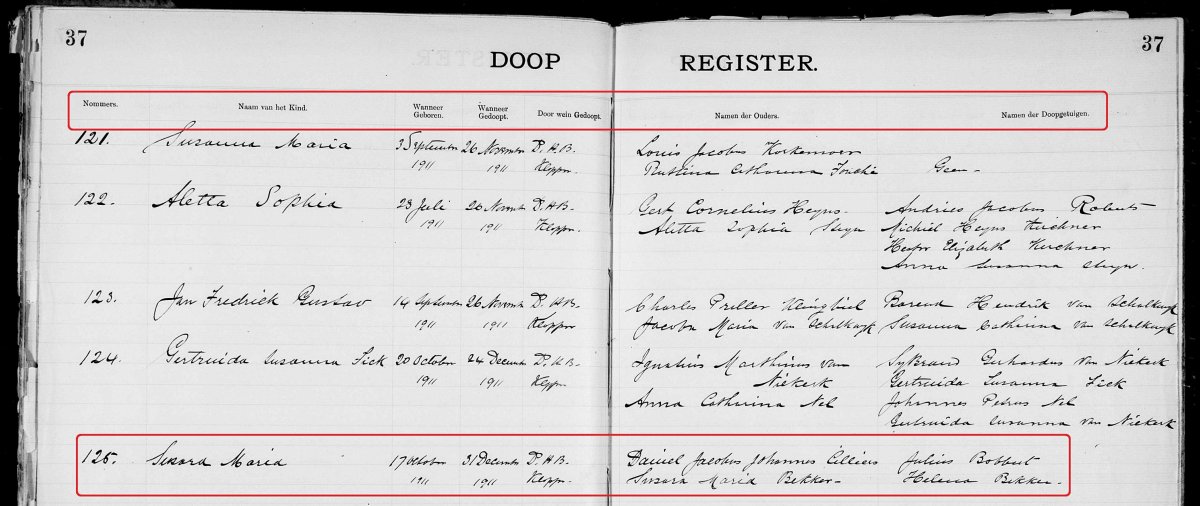 37
37
DOOP REGISTER.
Nommers. Naam van het Kind. Wanneer Geboren. Wanneer Gedoopt. Door wein Gedoopt. Namen der Ouders. Namen der Doopgetuigen.
121. Susanna Maria 3 September 26 November D. H. B. Louis Jacobus
1911 1911 Catharina Geen
122. Aletta Sophia 23 Juli 26 Novemb D. H. B. Gert Cornelius Heyns. Andries Jacobus Roberts
1911 1911 Aletta Sophia Steyn Michiel Heyns Kirchner
Elizabeth Kirchner
Anna Susanna Steyn.
123. Jan Fredrick Gustav 14 September 26 Novemb D. H. B. Charles Preller Barend Hendrik van Schalkwyk
1911 1911 Jacoba Maria van Schalkwyk Susanna Catharina van Schalkwyk
124. Gertruida Susanna Sick 20 October 24 Decemb D. H. B. Ignatius Marthinus van Gerhardus van Niekerk
1911 1911 Niekerk Gertruida Susanna Sick
Anna Catharina Nel Johannes Petrus Nel
Gertruida Susanna van Niekerk
125. Susara Maria 17 October 31 December D. H. B. Daniel Jacobus Johannes Cilliers Julius
1911 1911 Susara Maria Bekker Helena Bekker